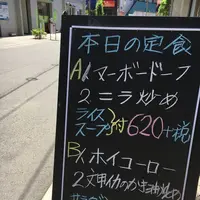 本日の定食
A/マーボードーフ
2ニラ炒め
ライス
スープ付620+税
B/ホイコーロー
2文甲イカのかき油炒め